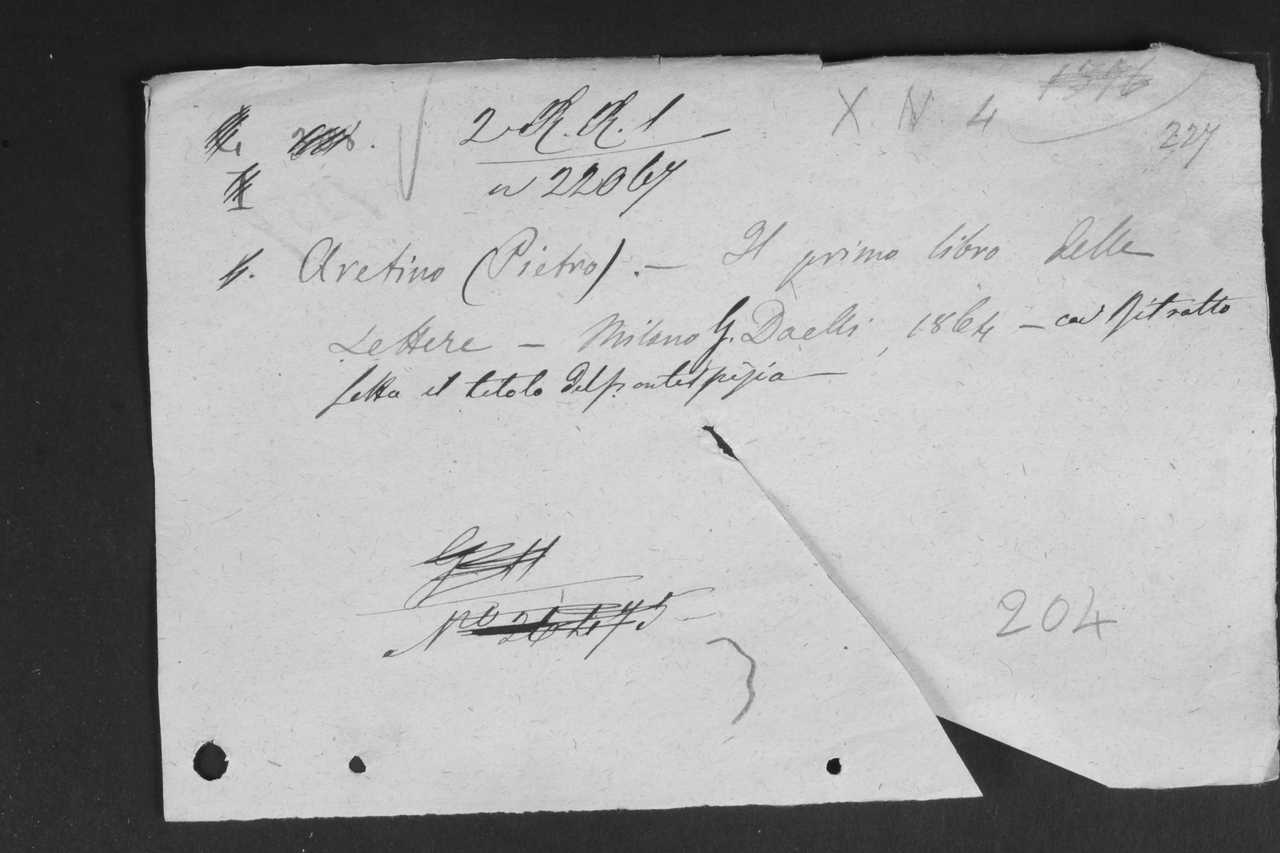 2 R. R. 1
X. N. 4
227
n 22067
Aretino (Pietro). — Il primo libro delle
Lettere — Milano G. Daelli, 1864 — col Ritratto
sotto il titolo del frontespizio —
No 26475
204